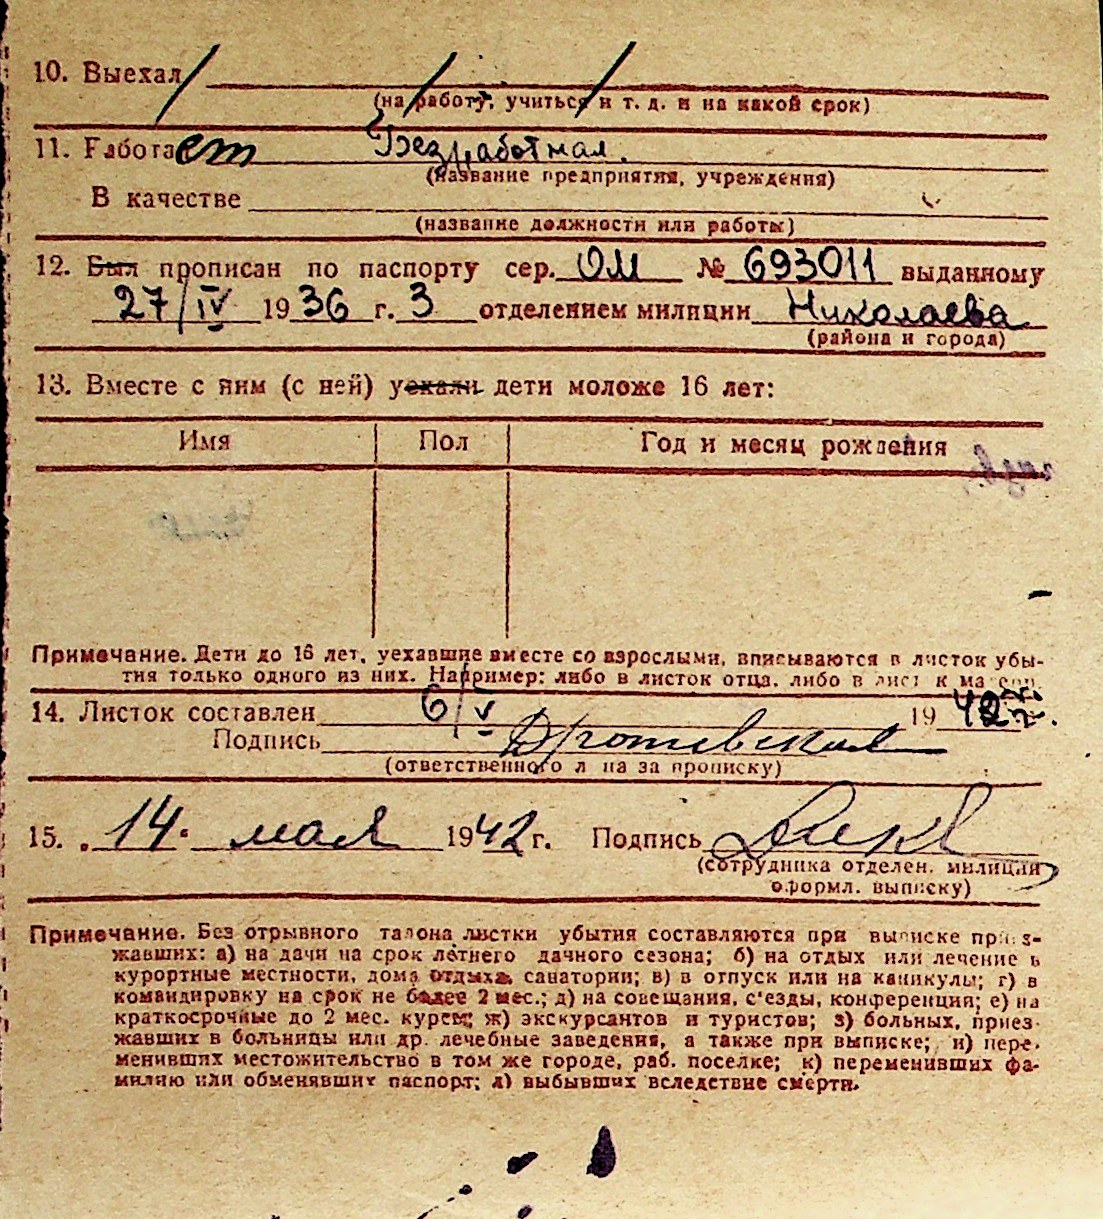 10. Выехал
(на работу, учиться и т. д. и на какой срок)
11. Работает Безработная.
(название предприятия, учреждения)
В качестве
(название должности или работы)
12. Был прописан по паспорту сер. ОМ № 693011 выданному
27/IV 1936 г. 3 отделением милиции Николаева
(района и города)
13. Вместе с ним (с ней) уехали дети моложе 16 лет:
Имя Пол Год и месяц рождения
Примечание. Дети до 16 лет, уехавшие вместе со взрослыми, вписываются в листок убы-
тия только одного из них. Например: либо в листок отца, либо в лист к ма ери.
14. Листок составлен 6/V 1942 г.
Подпись
(ответственного л ца за прописку)
15. 14. мая 1942 г. Подпись
(сотрудника отделен. милиции
оформл. выписку)
Примечание. Без отрывного талона листки убытия составляются при выписке приез-
жавших: а) на дачи на срок летнего дачного сезона; б) на отдых или лечение в
курортные местности, дома отдыха, санатории; в) в отпуск или на каникулы; г) в
командировку на срок не более 2 мес.; д) на совещания, с'езды, конференции; е) на
краткосрочные до 2 мес. курсы; ж) экскурсантов и туристов; з) больных, приез-
жавших в больницы или др. лечебные заведения, а также при выписке; и) пере-
менивших местожительство в том же городе, раб. поселке; к) переменивших фа-
милию или обменявших паспорт; л) выбывших вследствие смерти.